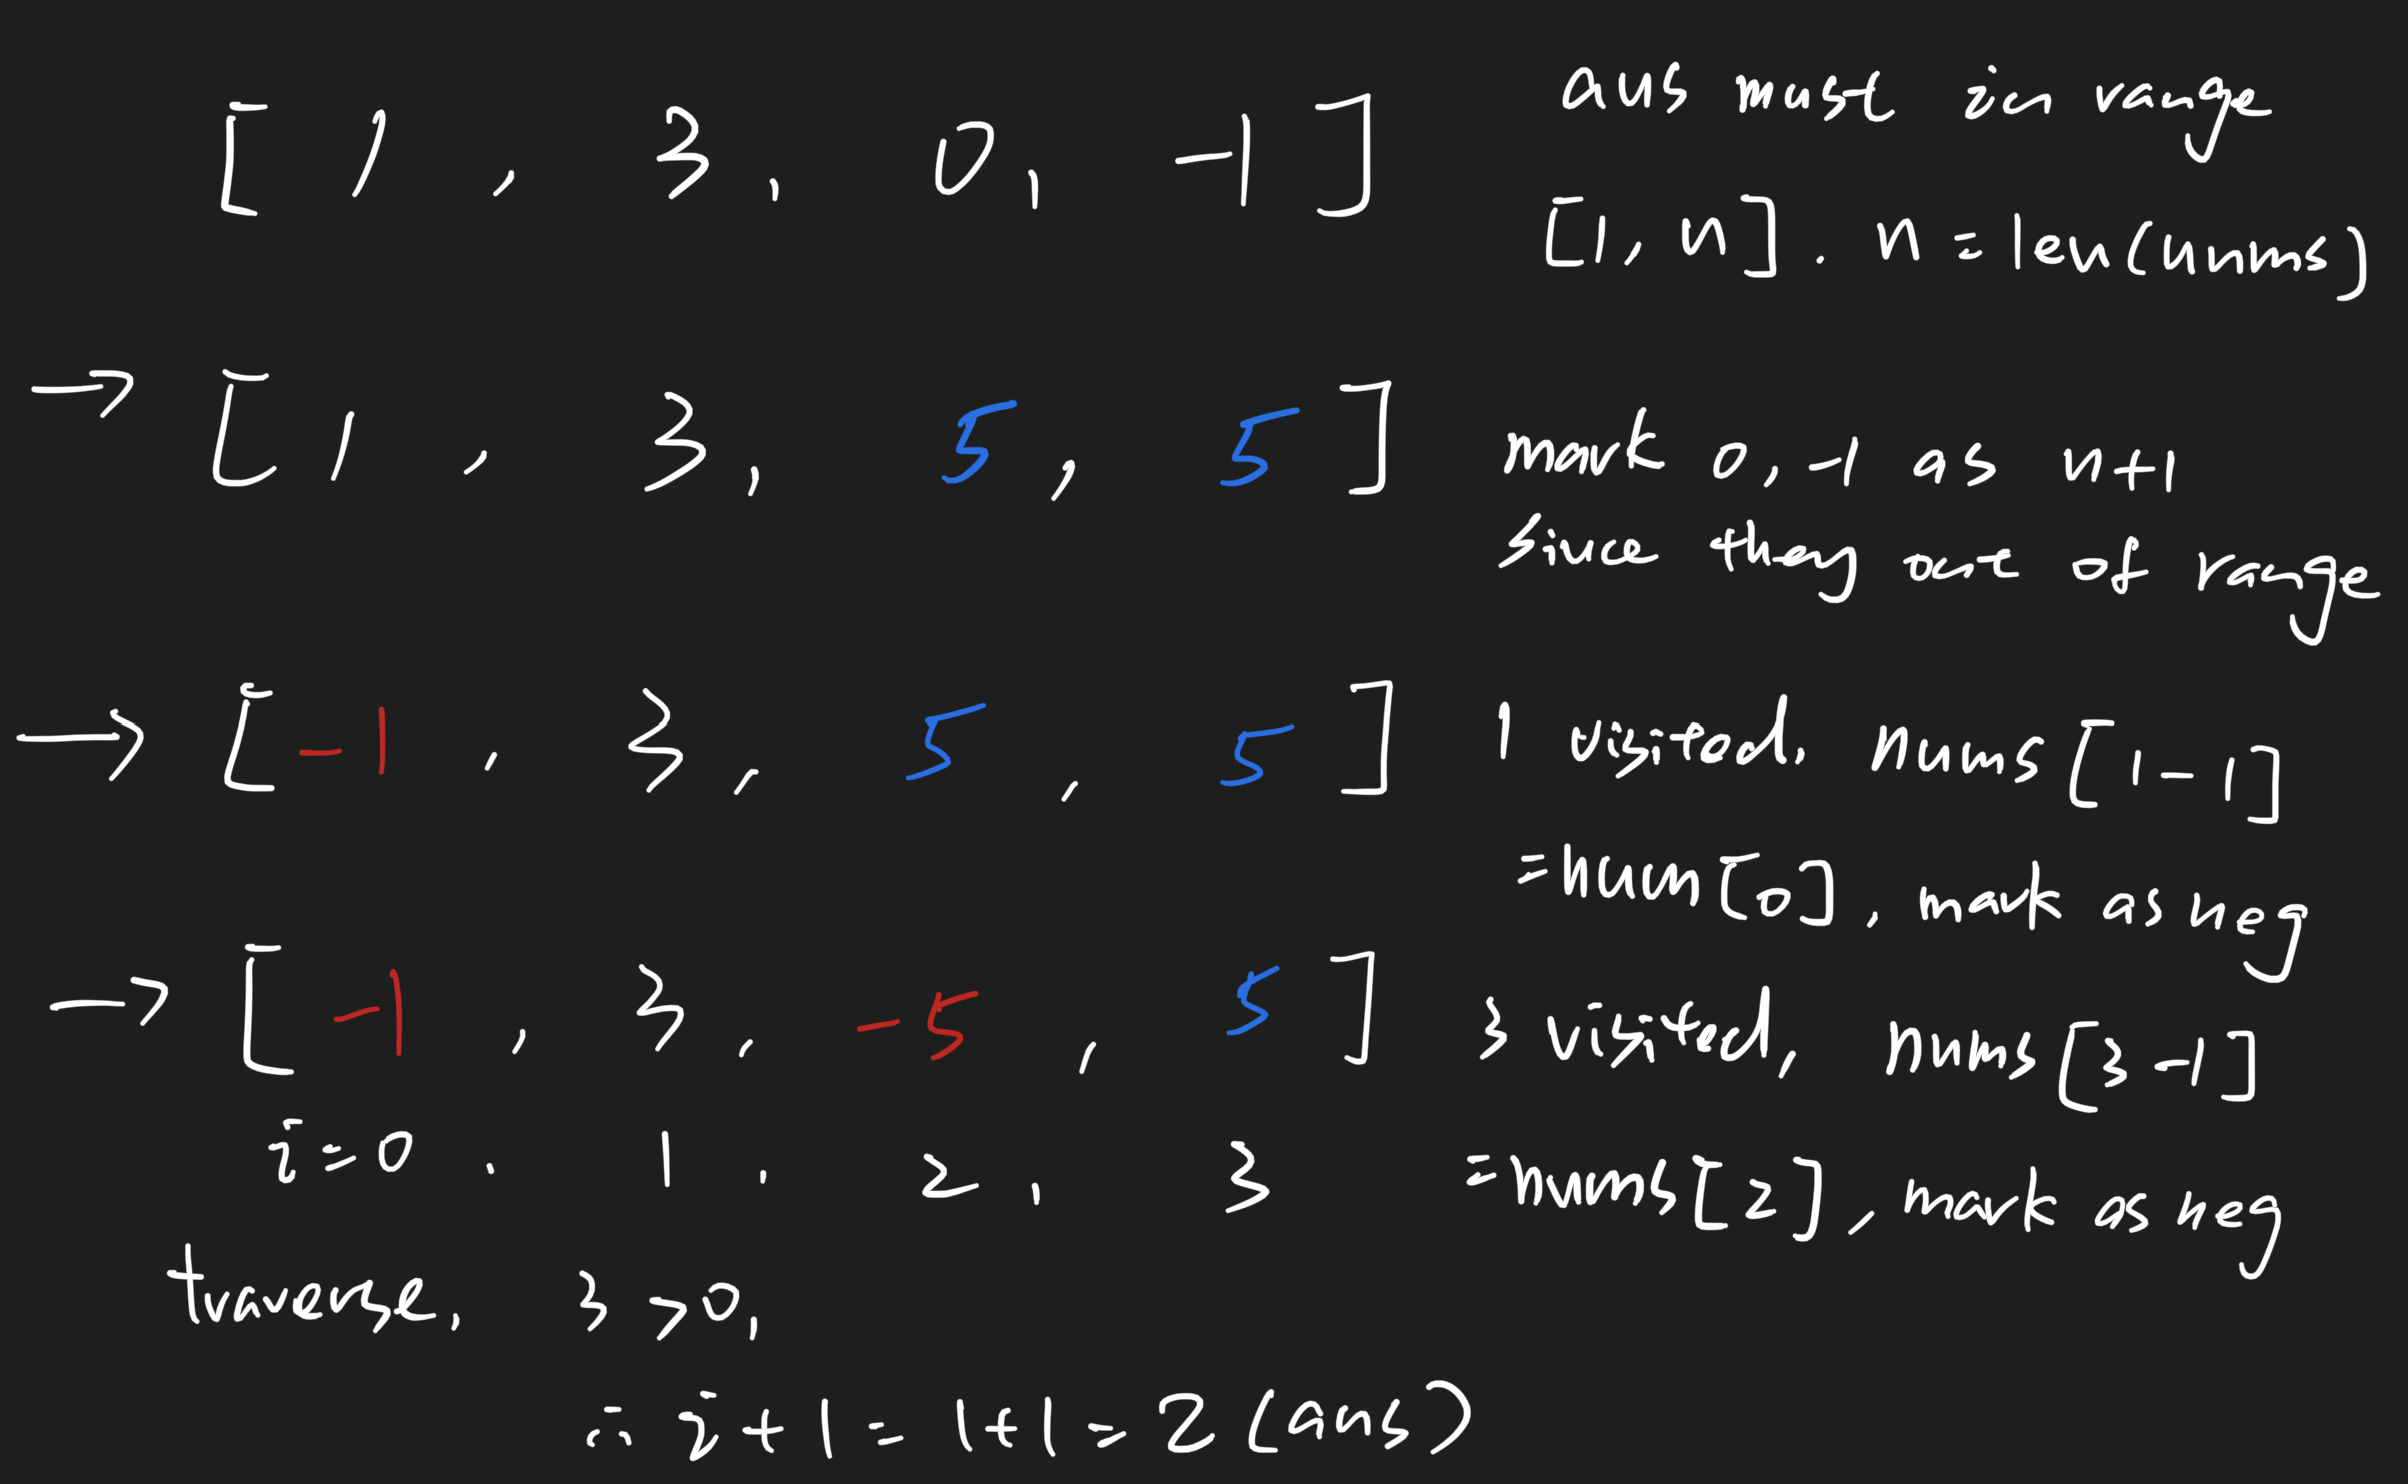 [ 1 , 3 , 0 , -1 ]
ans must in range
[1, n] . n = len(nums)
→ [ 1 , 3 , 5 , 5 ]
mark 0, -1 as n+1
since they out of range
→ [ -1 , 3 , 5 , 5 ]
1 visited, nums [1-1]
=num[0], mark as neg
→ [ -1 , 3 , -5 , 5 ]
3 visited, nums [3-1]
i=0 . 1 . 2 , 3
=nums[2], mark as neg
traverse, 3 >0,
∴ i+1 = 1+1 = 2 (ans)